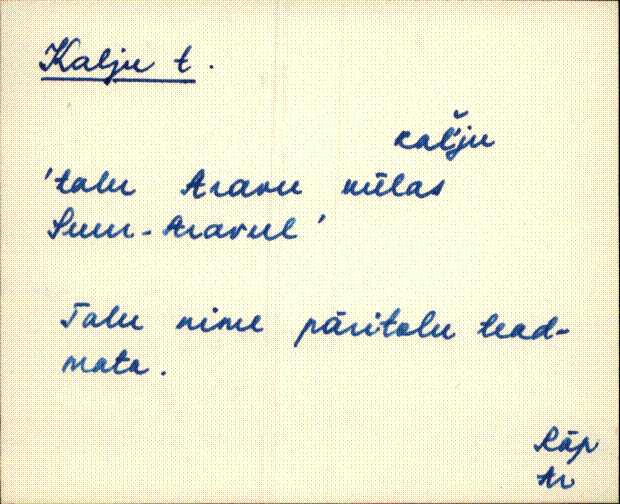 Kalju t.
kal'ju
'talu Aravu külas
Suur-Aravul'
Talu nime päritolu tead-
mata.
Räp
Ar